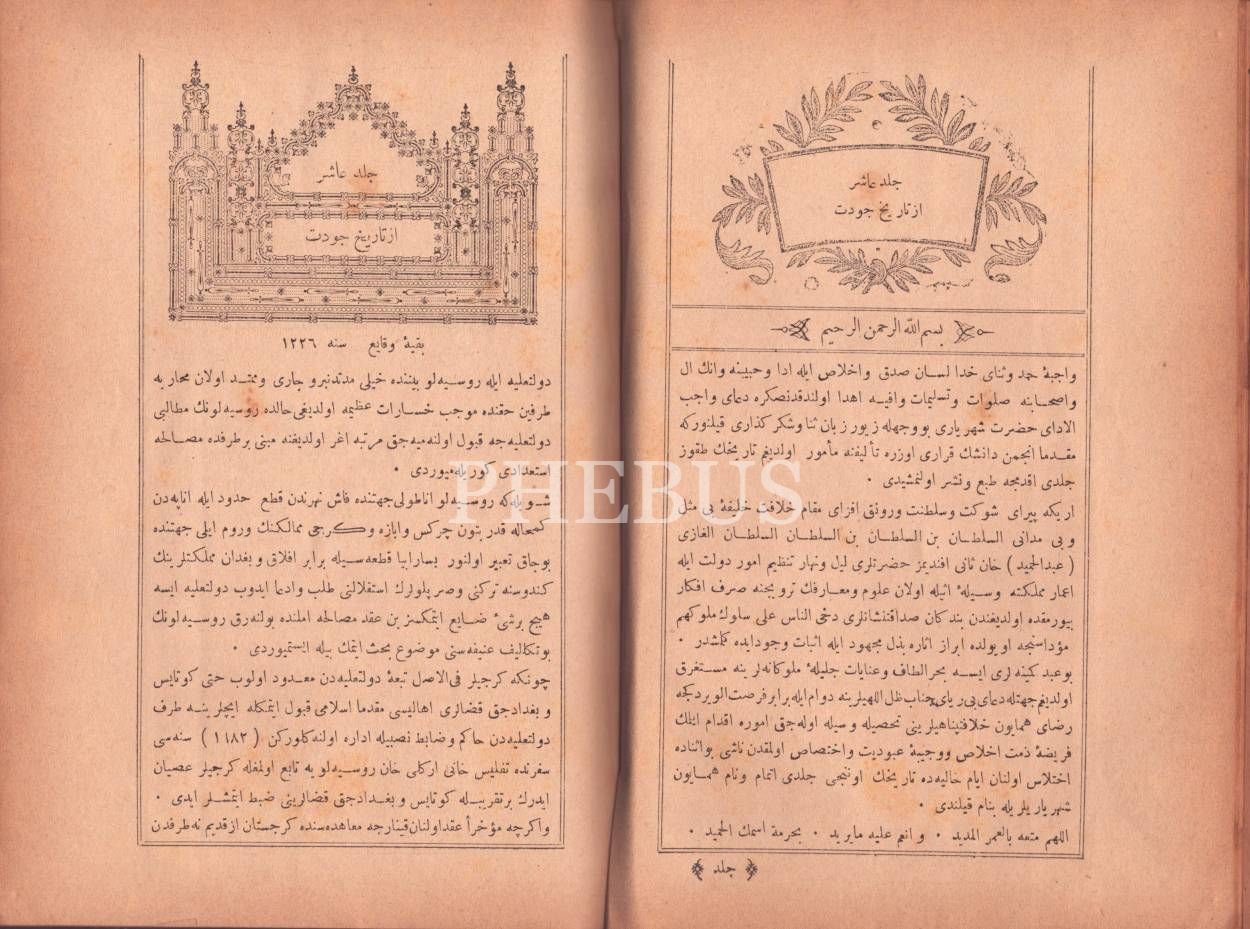 جلد عاشر
از تاریخ جودت
بسم الله الرحمن الرحیم
واجبهٔ حمد وثنای خدا لسان صدق واخلاص ایله ادا وحبیبنه وانك ال
واصحابنه صلوات وتسلیمات وافیه اهدا اولندقدنصکره دعای واجب
الادای حضرت شهریاری بووجهله زیور زبان ثنا وشکر کذاری قیلنورکه
مقدما انجمن دانشك قراری اوزره تألیفنه مأمور اولدیغم تاریخك طقوز
جلدی اقدمجه طبع ونشر اولنمشیدی ٠
اریکه پیرای شوکت وسلطنت ورونق افزای مقام خلافت خلیفهٔ بی مثل
وبی مدانی السلطان بن السلطان بن السلطان السلطان الغازی
( عبدالحمید ) خان ثانی افندیمز حضرتلری لیل ونهار تنظیم امور دولت ایله
اعمار مملکته وسیلهٔ اثیله اولان علوم ومعارفك ترویجنه صرف افکار
بیورمقده اولدیغندن بندکان صداقتنشانلری دخی الناس علی سلوك ملوکهم
مؤداسنجه اویولده ابراز اثاره بذل مجهود ایله اثبات وجود ایده کلمشدر ٠
بوعبد کمینه لری ایسه بحر الطاف وعنایات جلیلهٔ ملوکانه لرینه مستغرق
اولدیغم جهتله دعای بی ریای جناب ظل اللهیلرینه دوام ایله برابر فرصت الویردکجه
رضای همایون خلافتپناهیلرینی تحصیله وسیله اوله جق اموره اقدام ایتمك
فریضهٔ ذمت اخلاص ووجیبهٔ عبودیت واختصاص اولمقدن ناشی بواثناده
اختلاس اولنان ایام خالیه ده تاریخك اوننجی جلدی اتمام ونام همایون
شهریاریلریله بنام قیلندی ٠
اللهم متعه بالعمر المدید ٠ وانعم علیه مایرید ٠ بحرمة اسمك الحمید ٠
جلد
جلد عاشر
از تاریخ جودت
بقیهٔ وقایع سنه ١٢٢٦
دولتعلیه ایله روسیه لو بیننده خیلی مدتدنبرو جاری وممتد اولان محاربه
طرفین حقنده موجب خسارات عظیمه اولدیغی حالده روسیه لونك مطالبی
دولتعلیه جه قبول اولنه میه جق مرتبه اغر اولدیغنه مبنی برطرفده مصالحه
استعدادی کوریله میوردی ٠
شویله که روسیه لو اناطولی جهتنده فاش نهرندن قطع حدود ایله اناپه دن
کمخاله قدر بتون چرکس وابازه وکرجی ممالکنك وروم ایلی جهتنده
بوجاق تعبیر اولنور بسارابیا قطعه سیله برابر افلاق وبغدان مملکتلرینك
کندوسنه ترکنی وصرپلولرك استقلالنی طلب وادعا ایدوب دولتعلیه ایسه
هیچ برشیٔ ضایع ایتمکسزین عقد مصالحه املنده بولنه رق روسیه لونك
بوتکالیف عنیفه سنی موضوع بحث ایتمك بیله ایستمیوردی ٠
چونکه کرجیلر فی الاصل تبعهٔ دولتعلیه دن معدود اولوب حتی کوتایس
وبغدادجق قضالری اهالیسی مقدما اسلامی قبول ایتمکله ایچلرینه طرف
دولتعلیه دن حاکم وضابط نصبیله اداره اولنه کلورکن ( ١١٨٢ ) سنه سی
سفرنده تفلیس خانی ارکلی خان روسیه لویه تابع اولمغله کرجیلر عصیان
ایدرك برتقریبله کوتایس وبغدادجق قضالرینی ضبط ایتمشلر ایدی ٠
واکرچه مؤخراً عقد اولنان قینارجه معاهده سنده کرجستان از قدیم نه طرفدن
PHEBUS